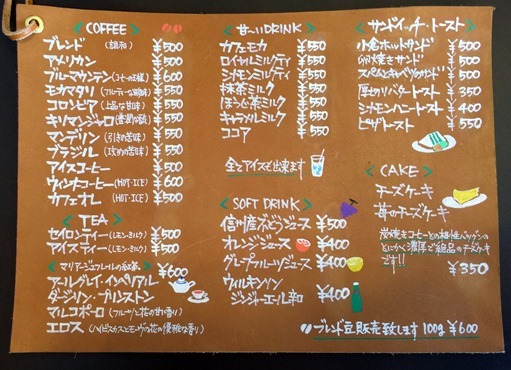 COFFEE
ブレンド (調和) ¥500
アメリカン ¥500
ブルーマウンテン (コーヒーの王様) ¥600
モカマタリ (フルーティーな酸味) ¥550
コロンビア (上品な甘味) ¥550
キリマンジャロ ¥550
マンデリン ¥550
ブラジル ¥550
アイスコーヒー ¥500
ウィンナコーヒー (HOT・ICE) ¥600
カフェオレ (HOT・ICE) ¥550
TEA
セイロンティー (レモン・ミルク) ¥500
アイスティー (レモン・ミルク) ¥500
マリアージュフレールの紅茶 ¥600
アールグレイ・インペリアル
ダージリン・プリンストン
マルコポーロ (フルーツと花の甘い香り)
エロス (ハイビスカスとモーヴの花の優雅な香り)
甘〜いDRINK
カフェモカ ¥550
ロイヤルミルクティ ¥550
シナモンミルクティ ¥550
抹茶ミルク ¥550
ほうじ茶ミルク ¥550
キャラメルミルク ¥550
ココア ¥550
全てアイスも出来ます
SOFT DRINK
信州産ぶどうジュース ¥500
オレンジジュース ¥400
グレープフルーツジュース ¥400
ウィルキンソン
ジンジャーエール辛口 ¥400
サンドイッチ・トースト
小倉ホットサンド ¥500
卵焼きサンド ¥500
スパムキャベツサンド ¥500
厚切りバタートースト ¥350
シナモンハニートースト ¥400
ピザトースト ¥550
CAKE
チーズケーキ
苺のチーズケーキ
炭焼きコーヒーとの相性バツグンの
とにかく濃厚で絶品のチーズケーキ
です!!
¥350
ブレンド豆販売致します 100g ¥600